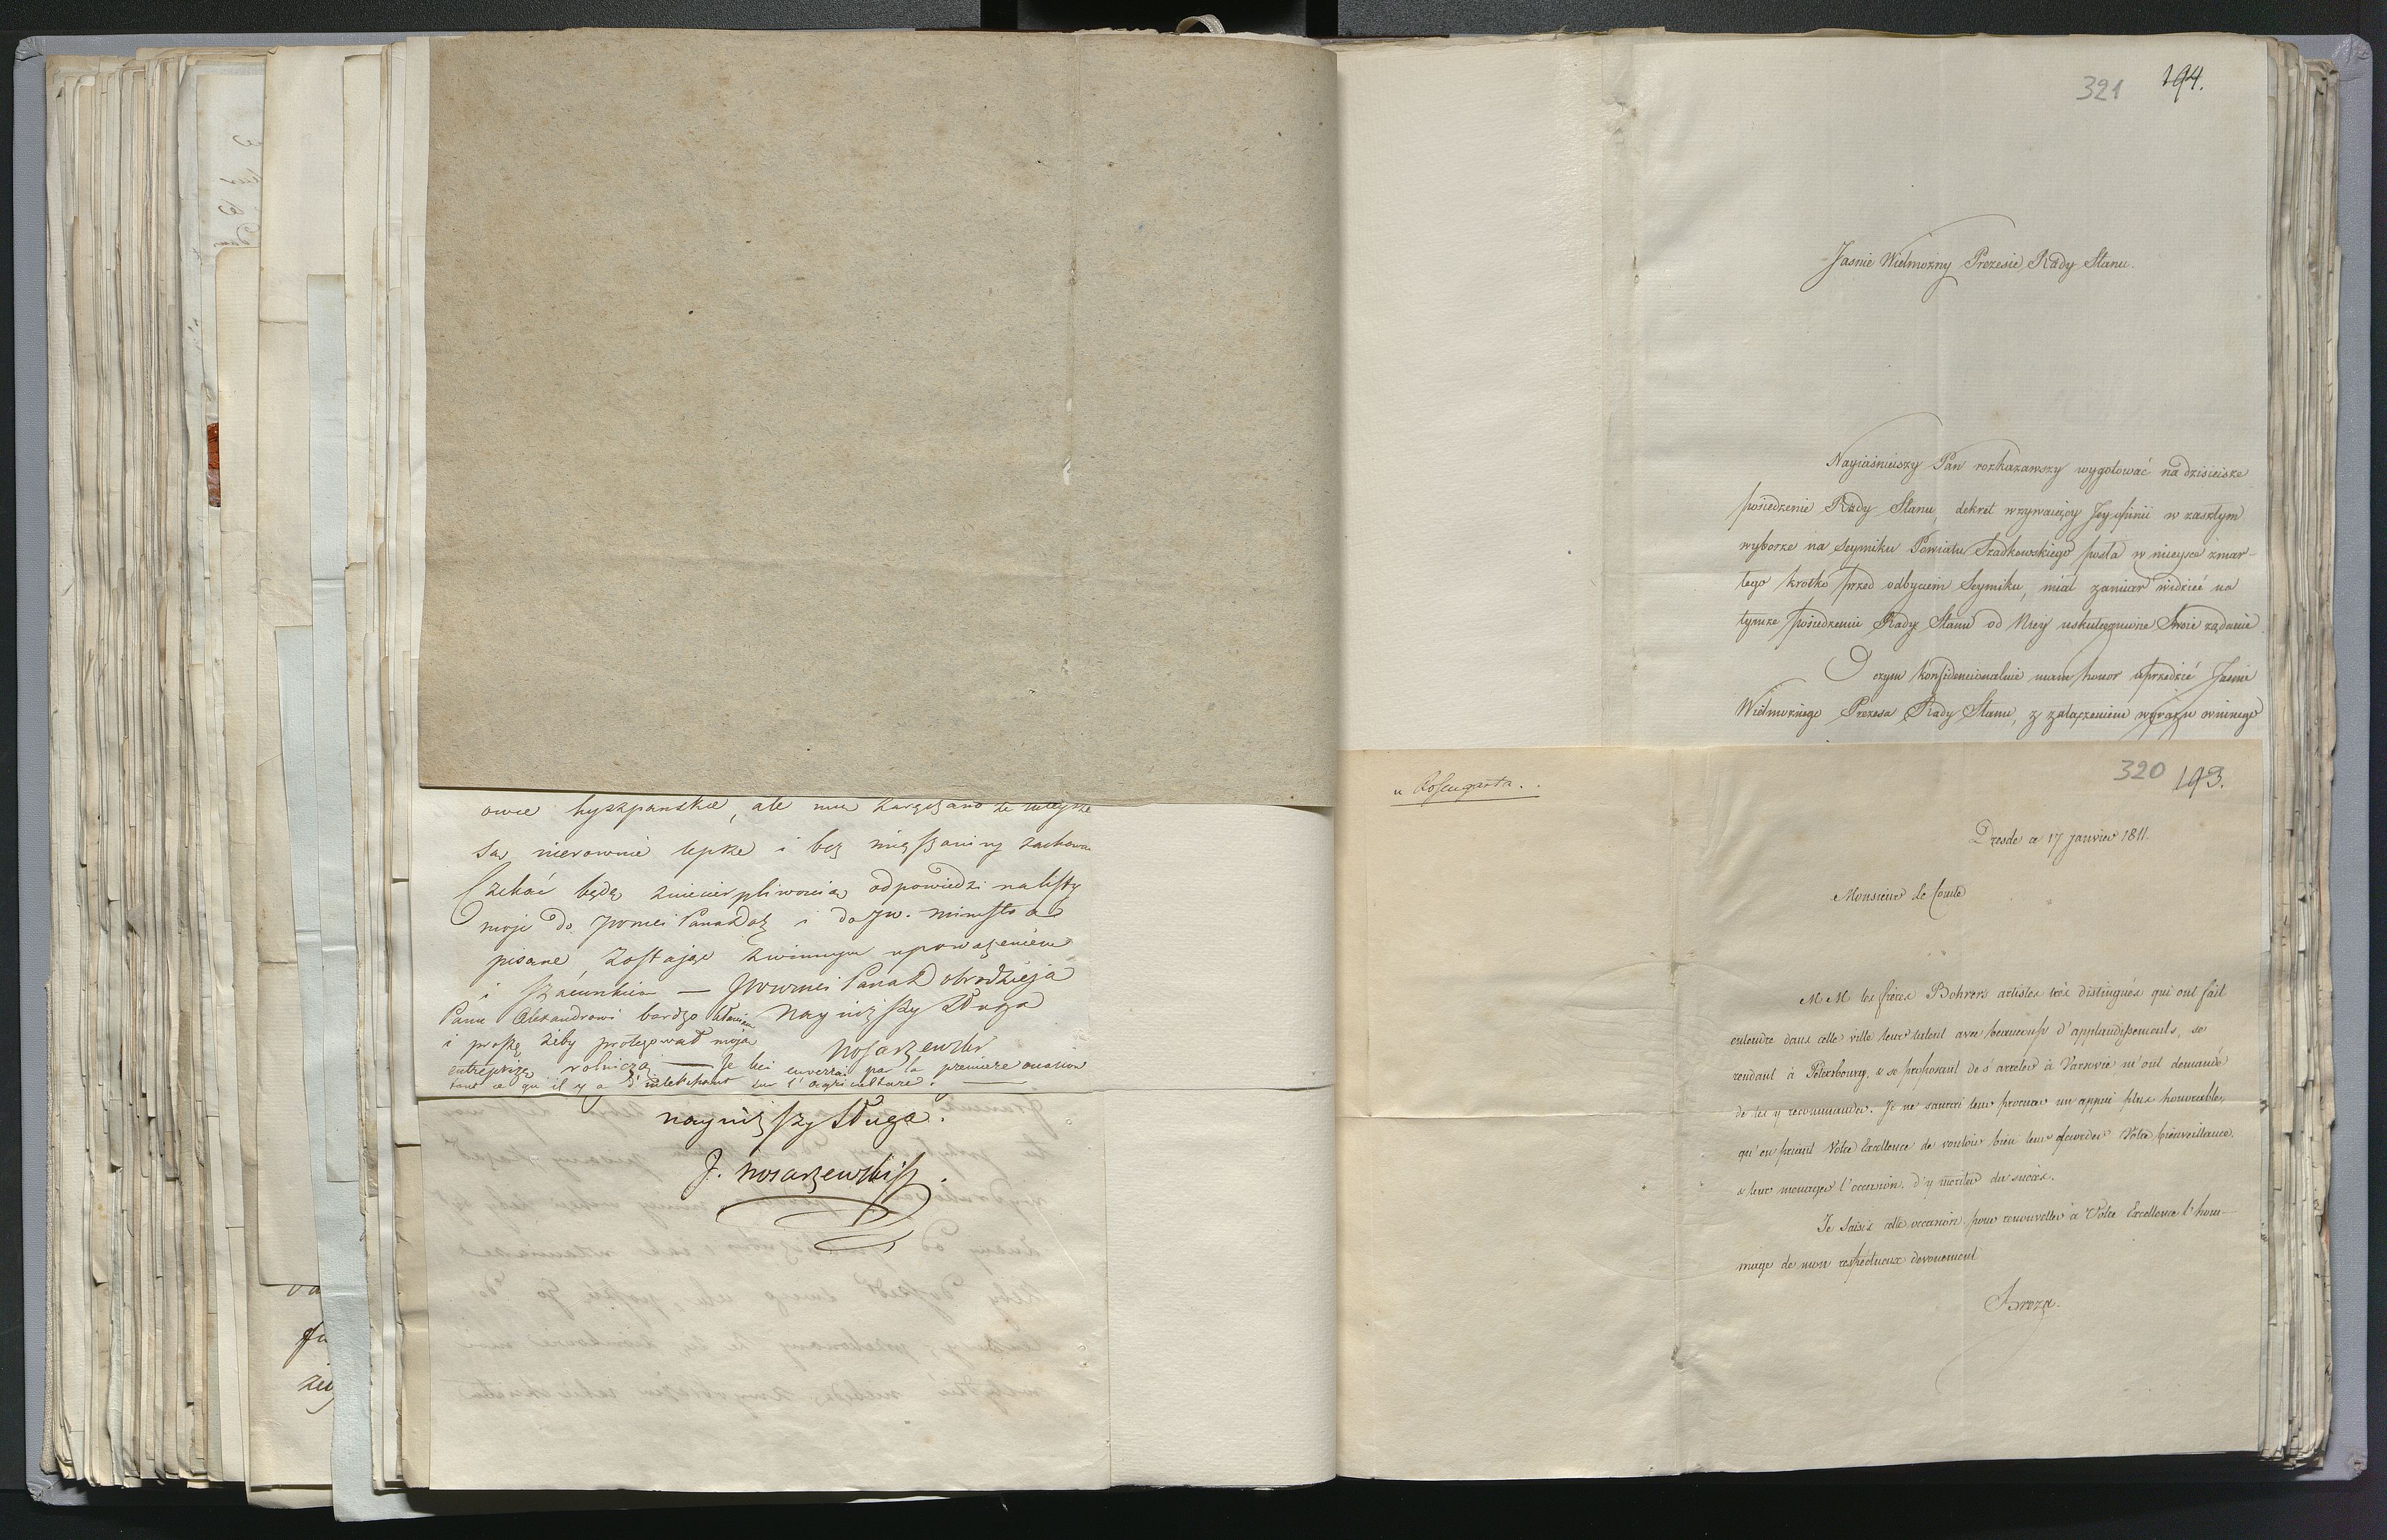 owce hyszpanskie, ale mu zaręczano że tutejsze
są nierownie lepsze i bez mięszaniny zachowa
Czekać będę zniecierpliwoscią odpowiedzi na listy
moje do JWmci Pana Dob i do JW. ministra
pisane zostając zwinnym upowazeniem
i szacunkiem — JWWmci Pana Dobrodzieja
Panu Alexandrowi bardzo kłaniam Nayniższy Sługa
i proszę żeby protegował moją Nosarzewski
entreprizę rolniczą — Je lui enverrai par la premiere occasion
tout ce qu'il y a d'interessant sur l'agriculture. —
nayniższy Sługa.
J. Nosarzewski
321 194.
Jasnie Wielmozny Prezesie Rady Stanu.
Nayiaśnieiszy Pan rozkazawszy wygotować na dzisieisze
posiedzenie Rady Stanu, dekret wzywaiący Jey opinii w zaszłym
wyborze na Seymiku Powiatu Szadkowskiego posła w mieysce zmar-
łego krotko przed odbyciem Seymiku, miał zamiar widzieć na
tymże posiedzeniu Rady Stanu od Niey uskutecznione Swoie żądanie
O czym konfidencionalnie mam honor uprzedzić Jasnie
Wielmożnego Prezesa Rady Stanu, z załączeniem wyrazu winnego
320 193.
u Rosengarta..
Dresde ce 17 janvier 1811.
Monsieur le Comte
MM les frères Bohrers artistes très distingués qui ont fait
entendre dans cette ville leur talent avec beaucoup d'applaudissements, se
rendant à Petersbourg, & se proposant de s'arreter à Varsovie m'ont demandé
de les y recommander. Je ne saurai leur procurer un appui plus honorable,
qu'en priant Votre Excellence de vouloir bien leur accorder Votre bienveillance,
& leur menager l'occasion, d'y meriter du succès.
Je saisis cette occasion pour renouveller à Votre Excellence l'hom-
mage de mon respectueux devouement
Breza.